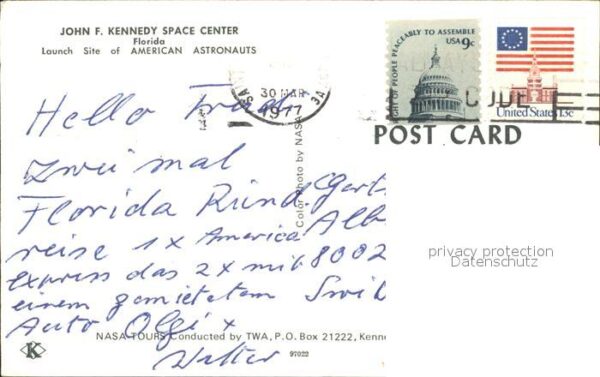 JOHN F. KENNEDY SPACE CENTER
Florida
Launch Site of AMERICAN ASTRONAUTS
RIGHT OF PEOPLE PEACEABLY TO ASSEMBLE
USA 9c
United States 13c
30 MAR
1977
POST CARD
Color Photo by NASA
Hello
zwei mal
Florida Rund
reise 1x America
express das 2x mit
einem gemieteten
Auto Olgi x
Walter
Gert
Alb
8002
Swi
privacy protection
Datenschutz
NASA TOURS Conducted by TWA, P.O. Box 21222, Kenne
K
97022